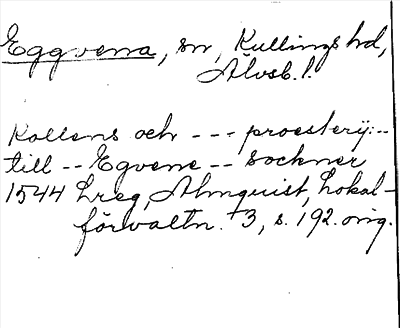 Eggvena, sn, Kullings hd,
Älvsb. l.
Kollens och --- proesterij:--
till -- Egvene -- sockner
1544 Lreg, Almquist, Lokal-
förvaltn. 3, s. 192. orig.